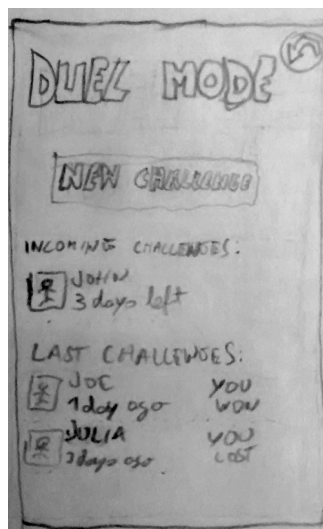 DUEL MODE
NEW CHALLENGE
INCOMING CHALLENGES:
JOHN
3 days left
LAST CHALLENGES:
JOE YOU
1 day ago WON
JULIA YOU
days ago LOST